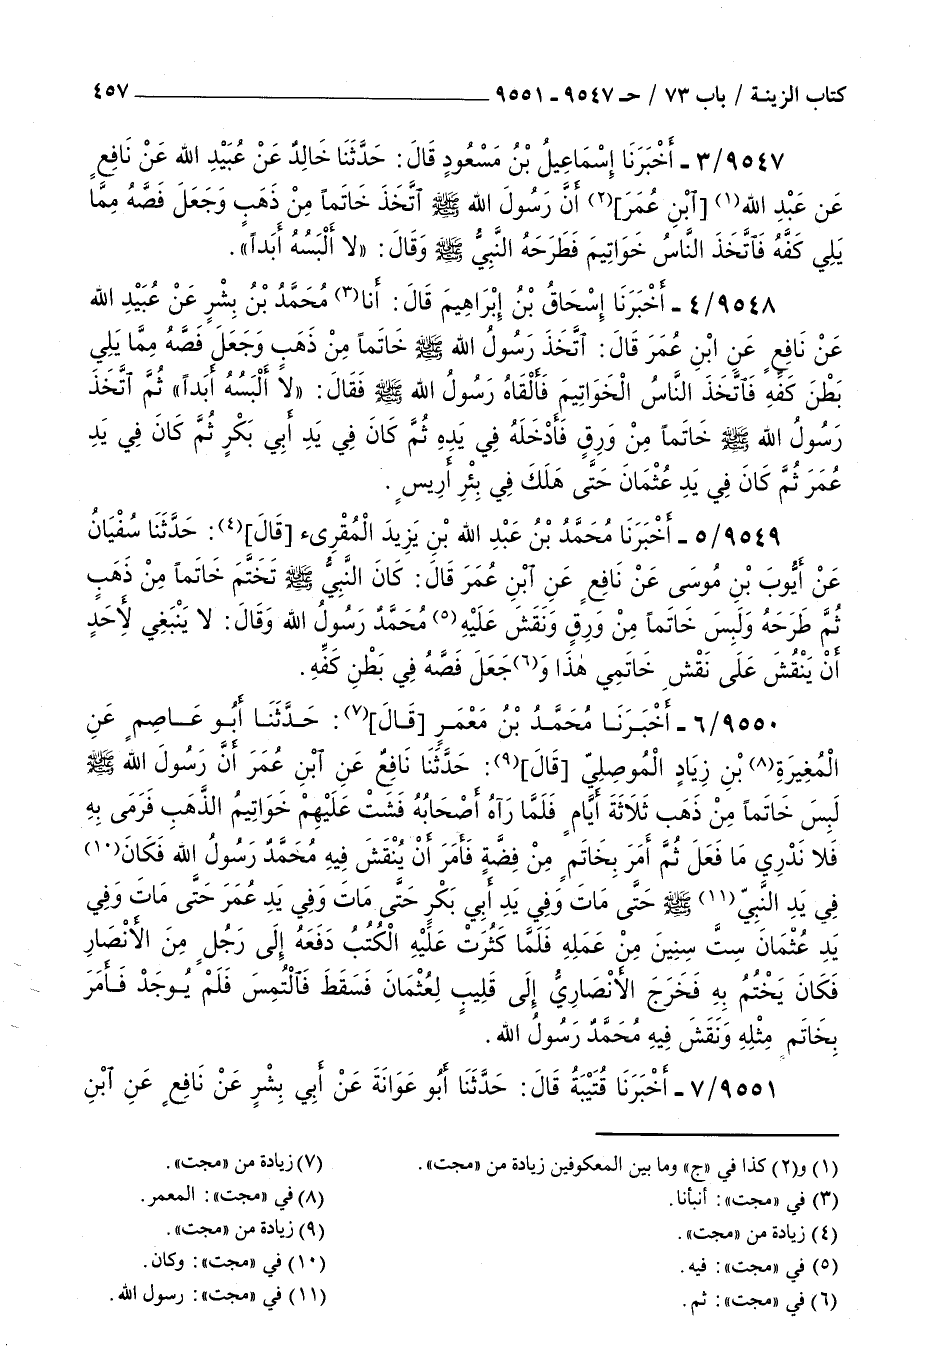 كتاب الزينة / باب ٧٣ / حـ ٩٥٤٧ ـ ٩٥٥١ ٤٥٧
٩٥٤٧/٣ ـ أَخْبَرَنَا إِسْمَاعِيلُ بْنُ مَسْعُودٍ قَالَ: حَدَّثَنَا خَالِدٌ عَنْ عُبَيْدِ الله عَنْ نَافِعٍ
عَن عَبْدِ الله(١) [ابْنِ عُمَرَ](٢) أَنَّ رَسُولَ الله ﷺ اتَّخَذَ خَاتَماً مِنْ ذَهَبٍ وَجَعَلَ فَصَّهُ مِمَّا
يَلِي كَفَّهُ فَاتَّخَذَ النَّاسُ خَوَاتِيمَ فَطَرَحَهُ النَّبِيُّ ﷺ وَقَالَ: «لا أَلْبَسُهُ أَبَداً».
٩٥٤٨/٤ ـ أَخْبَرَنَا إِسْحَاقُ بْنُ إِبْرَاهِيمَ قَالَ: أَنا(٣) مُحَمَّدُ بْنُ بِشْرٍ عَنْ عُبَيْدِ الله
عَنْ نَافِعٍ عَنِ ابْنِ عُمَرَ قَالَ: اتَّخَذَ رَسُولُ الله ﷺ خَاتَماً مِنْ ذَهَبٍ وَجَعَلَ فَصَّهُ مِمَّا يَلِي
بَطْنَ كَفِّهِ فَاتَّخَذَ النَّاسُ الْخَوَاتِيمَ فَأَلْقَاهُ رَسُولُ الله ﷺ فَقَالَ: «لا أَلْبَسُهُ أَبَداً» ثُمَّ اتَّخَذَ
رَسُولُ الله ﷺ خَاتَماً مِنْ وَرِقٍ فَأَدْخَلَهُ فِي يَدِهِ ثُمَّ كَانَ فِي يَدِ أَبِي بَكْرٍ ثُمَّ كَانَ فِي يَدِ
عُمَرَ ثُمَّ كَانَ فِي يَدِ عُثْمَانَ حَتَّى هَلَكَ فِي بِئْرِ أَرِيسٍ.
٩٥٤٩/٥ ـ أَخْبَرَنَا مُحَمَّدُ بْنُ عَبْدِ الله بْنِ يَزِيدَ الْمُقْرِىء [قَالَ](٤): حَدَّثَنَا سُفْيَانُ
عَنْ أَيُّوبَ بْنِ مُوسَى عَنْ نَافِعٍ عَنِ ابْنِ عُمَرَ قَالَ: كَانَ النَّبِيُّ ﷺ تَخَتَّمَ خَاتَماً مِنْ ذَهَبٍ
ثُمَّ طَرَحَهُ وَلَبِسَ خَاتَماً مِنْ وَرِقٍ وَنَقَشَ عَلَيْهِ(٥) مُحَمَّدٌ رَسُولُ الله وَقَالَ: لا يَنْبَغِي لِأَحَدٍ
أَنْ يَنْقُشَ عَلَى نَقْشِ خَاتَمِي هٰذَا وَ(٦)جَعَلَ فَصَّهُ فِي بَطْنِ كَفِّهِ.
٩٥٥٠/٦ ـ أَخْبَرَنَا مُحَمَّدُ بْنُ مَعْمَرٍ [قَالَ](٧): حَدَّثَنَا أَبُو عَاصِمٍ عَنِ
الْمُغِيرَةِ(٨) بْنِ زِيَادٍ الْمُوصِلِيِّ [قَالَ](٩): حَدَّثَنَا نَافِعٌ عَنِ ابْنِ عُمَرَ أَنَّ رَسُولَ الله ﷺ
لَبِسَ خَاتَماً مِنْ ذَهَب ثَلَاثَةَ أَيَّامٍ فَلَمَّا رَآهُ أَصْحَابُهُ فَشَتْ عَلَيْهِمْ خَوَاتِيمُ الذَّهَبِ فَرَمَى بِهِ
فَلا نَدْرِي مَا فَعَلَ ثُمَّ أَمَرَ بِخَاتَمٍ مِنْ فِضَّةٍ فَأَمَرَ أَنْ يُنْقَشَ فِيهِ مُحَمَّدٌ رَسُولُ الله فَكَانَ(١٠)
فِي يَدِ النَّبِيِّ(١١) ﷺ حَتَّى مَاتَ وَفِي يَدِ أَبِي بَكْرٍ حَتَّى مَاتَ وَفِي يَدِ عُمَرَ حَتَّى مَاتَ وَفِي
يَدِ عُثْمَانَ سِتَّ سِنِينَ مِنْ عَمَلِهِ فَلَمَّا كَثُرَتْ عَلَيْهِ الْكُتُبُ دَفَعَهُ إِلَى رَجُلٍ مِنَ الأَنْصَارِ
فَكَانَ يَخْتُمُ بِهِ فَخَرَجَ الأَنْصَارِيُّ إِلَى قَلِيبٍ لِعُثْمَانَ فَسَقَطَ فَالْتُمِسَ فَلَمْ يُوجَدْ فَأَمَرَ
بِخَاتَمٍ مِثْلِهِ وَنَقَشَ فِيهِ مُحَمَّدٌ رَسُولُ الله.
٩٥٥١/٧ ـ أَخْبَرَنَا قُتَيْبَةُ قَالَ: حَدَّثَنَا أَبُو عَوَانَةَ عَنْ أَبِي بِشْرٍ عَنْ نَافِعٍ عَنِ ابْنِ
(١) و(٢) كذا في «ج» وما بين المعكوفين زيادة من «مجت».
(٣) في «مجت»: أنبأنا.
(٤) زيادة من «مجت».
(٥) في «مجت»: فيه.
(٦) في «مجت»: ثم.
(٧) زيادة من «مجت».
(٨) في «مجت»: المعمر.
(٩) زيادة من «مجت».
(١٠) في «مجت»: وكان.
(١١) في «مجت»: رسول الله.